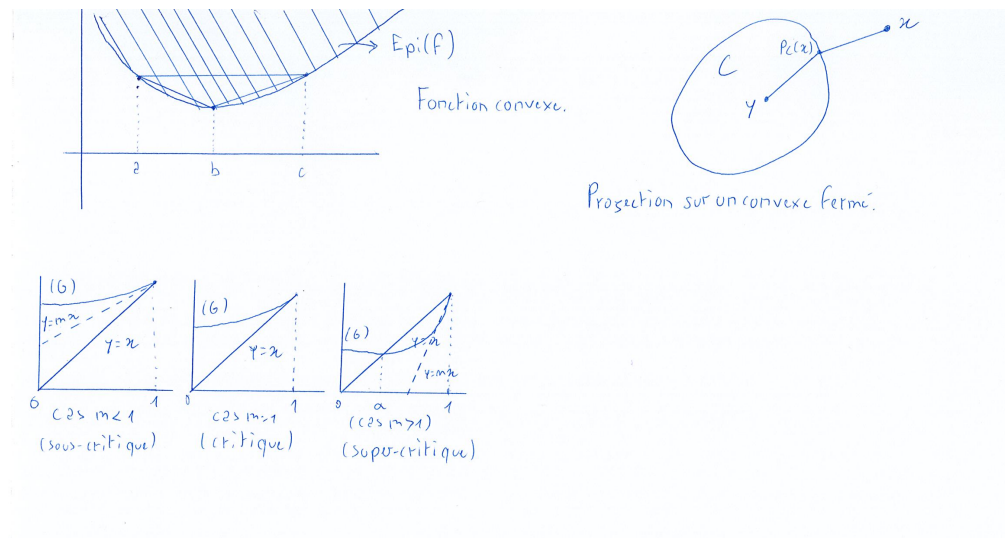 Epi(f)
Fonction convexe.
a b c
C
Pc(x)
x
y
Projection sur un convexe fermé.
(G)
y=mx
y=x
0 1
cas m<1
(sous-critique)
(G)
y=x
0 1
cas m=1
(critique)
(G)
y=x
y=mx
0 a 1
(cas m>1)
(super-critique)